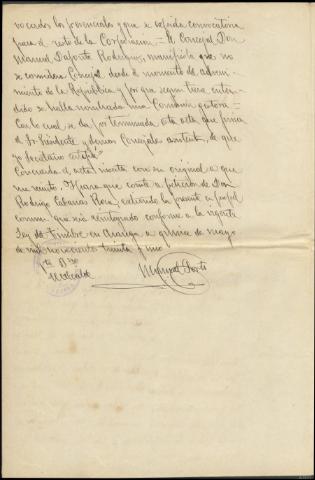 vocados los presenciales y que se expida convocatoria
para el resto de la Corporación. = El Concejal Don
Manuel Daporta Rodriguez, manifiesta que no
se considera Concejal desde el momento del adveni-
miento de la República y por que segun tiene enten-
dido se halla nombrada una Comision gestora =
Con lo cual se da por terminada esta acta que firma
el Sr. Presidente y demas Concejales asistentes, de que
yo Secretario certifico"
Concuerda el acta inserta con su original a que
me remito. Y para que conste a peticion de Don
Rodrigo Cabanas Rosa, extiendo la presente en papel
comun que será reintegrado conforme a la vigente
Ley del timbre en a quince de mayo
de mil novecientos treinta y uno
Vto Bno
El Alcalde
Manuel